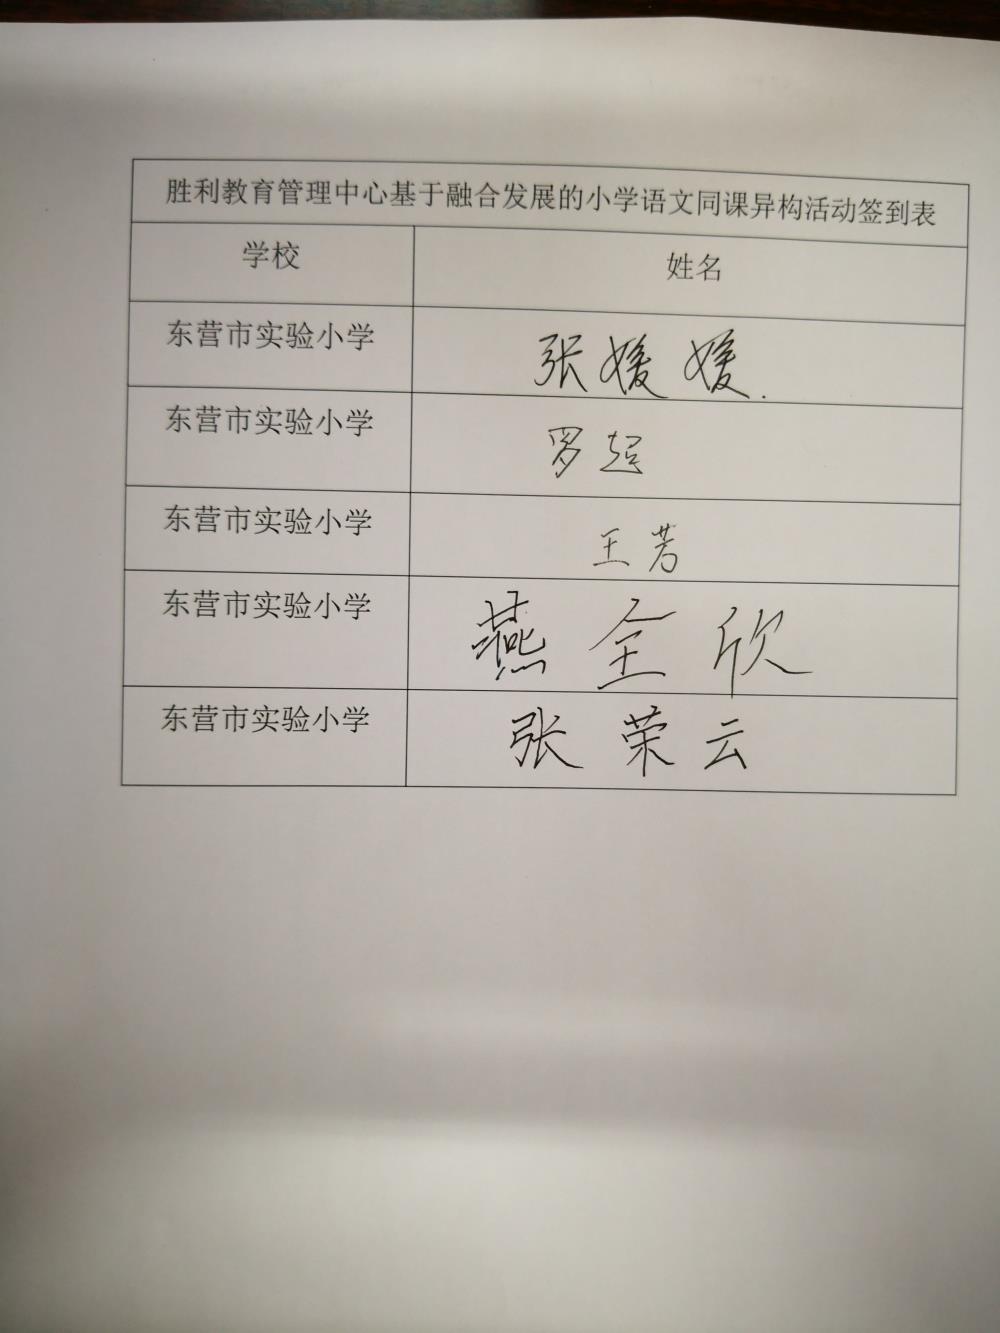 胜利教育管理中心基于融合发展的小学语文同课异构活动签到表
学校 姓名
东营市实验小学 张媛媛.
东营市实验小学 罗超
东营市实验小学 王芳
东营市实验小学 燕全欣
东营市实验小学 张荣云